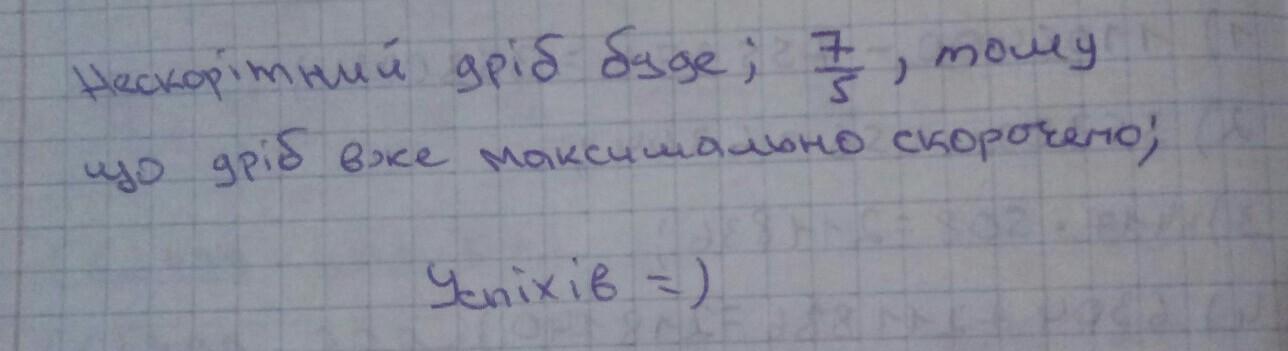 Нескорітний дріб буде; 7/5, тому
що дріб вже максимально скорочено;
Успіхів =)